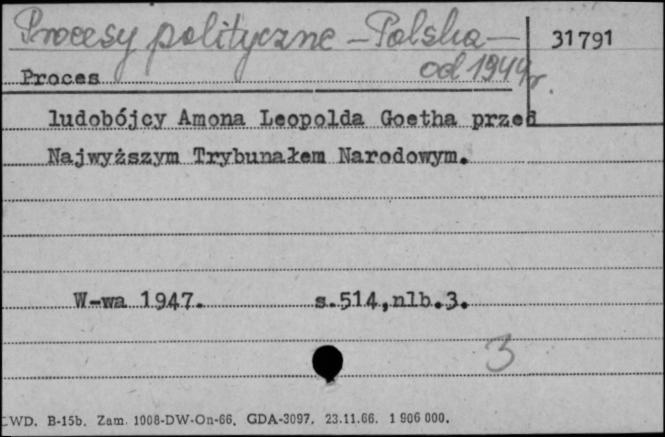 Procesy polityczne - Polska -
od 1944 r.
31791
Proces
ludobójcy Amona Leopolda Goetha przed
Najwyższym Trybunałem Narodowym.
W-wa 1947. s.514,nlb.3.
3
WD. B-15b. Zam. 1008-DW-On-66. GDA-3097. 23.11.66. 1 906 000.